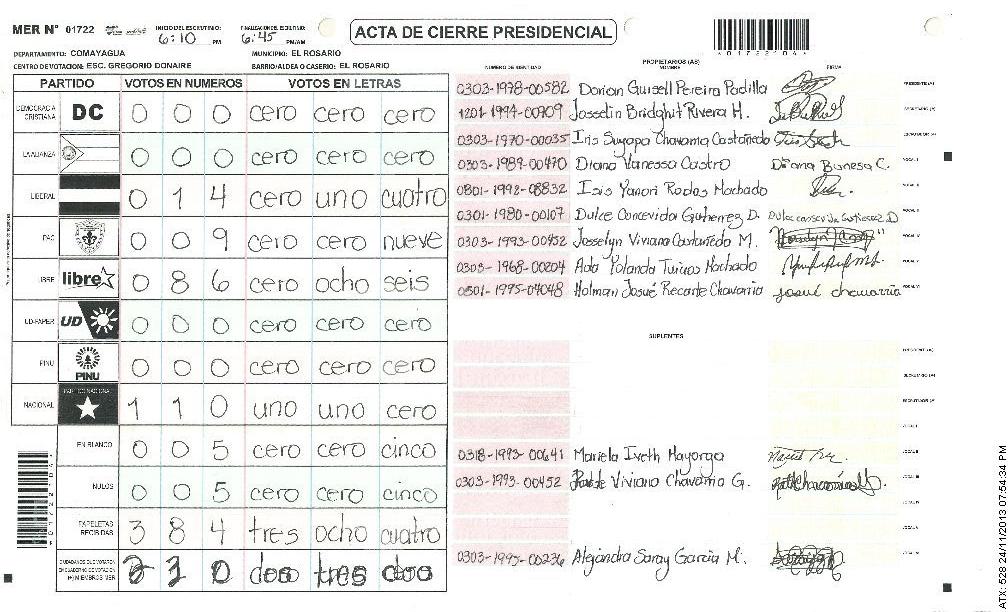 MER N° 01722 INICIO DEL ESCRUTINIO: 6:10 PM FINALIZACION DEL ESCRUTINIO: 6:45 PM/AM ACTA DE CIERRE PRESIDENCIAL
DEPARTAMENTO: COMAYAGUA MUNICIPIO: EL ROSARIO
CENTRO DE VOTACION: ESC. GREGORIO DONAIRE BARRIO/ALDEA O CASERIO: EL ROSARIO
PARTIDO VOTOS EN NUMEROS VOTOS EN LETRAS
DEMOCRACIA CRISTIANA DC 0 0 0 cero cero cero
LA ALIANZA 0 0 0 cero cero cero
LIBERAL 0 1 4 cero uno cuatro
PAC 0 0 9 cero cero nueve
LIBRE libre 0 8 6 cero ocho seis
UD-FAPER UD 0 0 0 cero cero cero
PINU PINU 0 0 0 cero cero cero
NACIONAL PARTIDO NACIONAL 1 1 0 uno uno cero
EN BLANCO 0 0 5 cero cero cinco
NULOS 0 0 5 cero cero cinco
PAPELETAS RECIBIDAS 3 8 4 tres ocho cuatro
PROPIETARIOS (AS)
NUMERO DE IDENTIDAD NOMBRE FIRMA
0303-1998-00582 Dorian Guisell Pereira Padilla PRESIDENTE (A)
1201-1994-00909 Josselin Bridghit Rivera H. SECRETARIO (A)
0303-1970-00035 Iris Suyapa Chavarria Castañeda ESCRUTADOR (A)
0303-1989-00470 Diana Vanessa Castro Diana Banesa C. VOCAL I
0801-1992-08832 Isis Yanori Rodas Machado VOCAL II
0301-1980-00107 Dulce Concevida Gutierrez D.
0303-1993-00452 Josselyn Viviana Castañeda M.
0303-1968-00204 Ada Yolanda Turcios Machado
0501-1995-04048 Holman Josué Recarte Chavarria josué chavarria
SUPLENTES
PRESIDENTE (A)
SECRETARIO (A)
ESCRUTADOR (A)
0318-1993-00641 Mariela Iveth Mayorga
0303-1993-00452 Viviana Chavarria G.
Alejandra Saray Garcia M.
ATX: 528 24/11/2013 07:54:34 PM